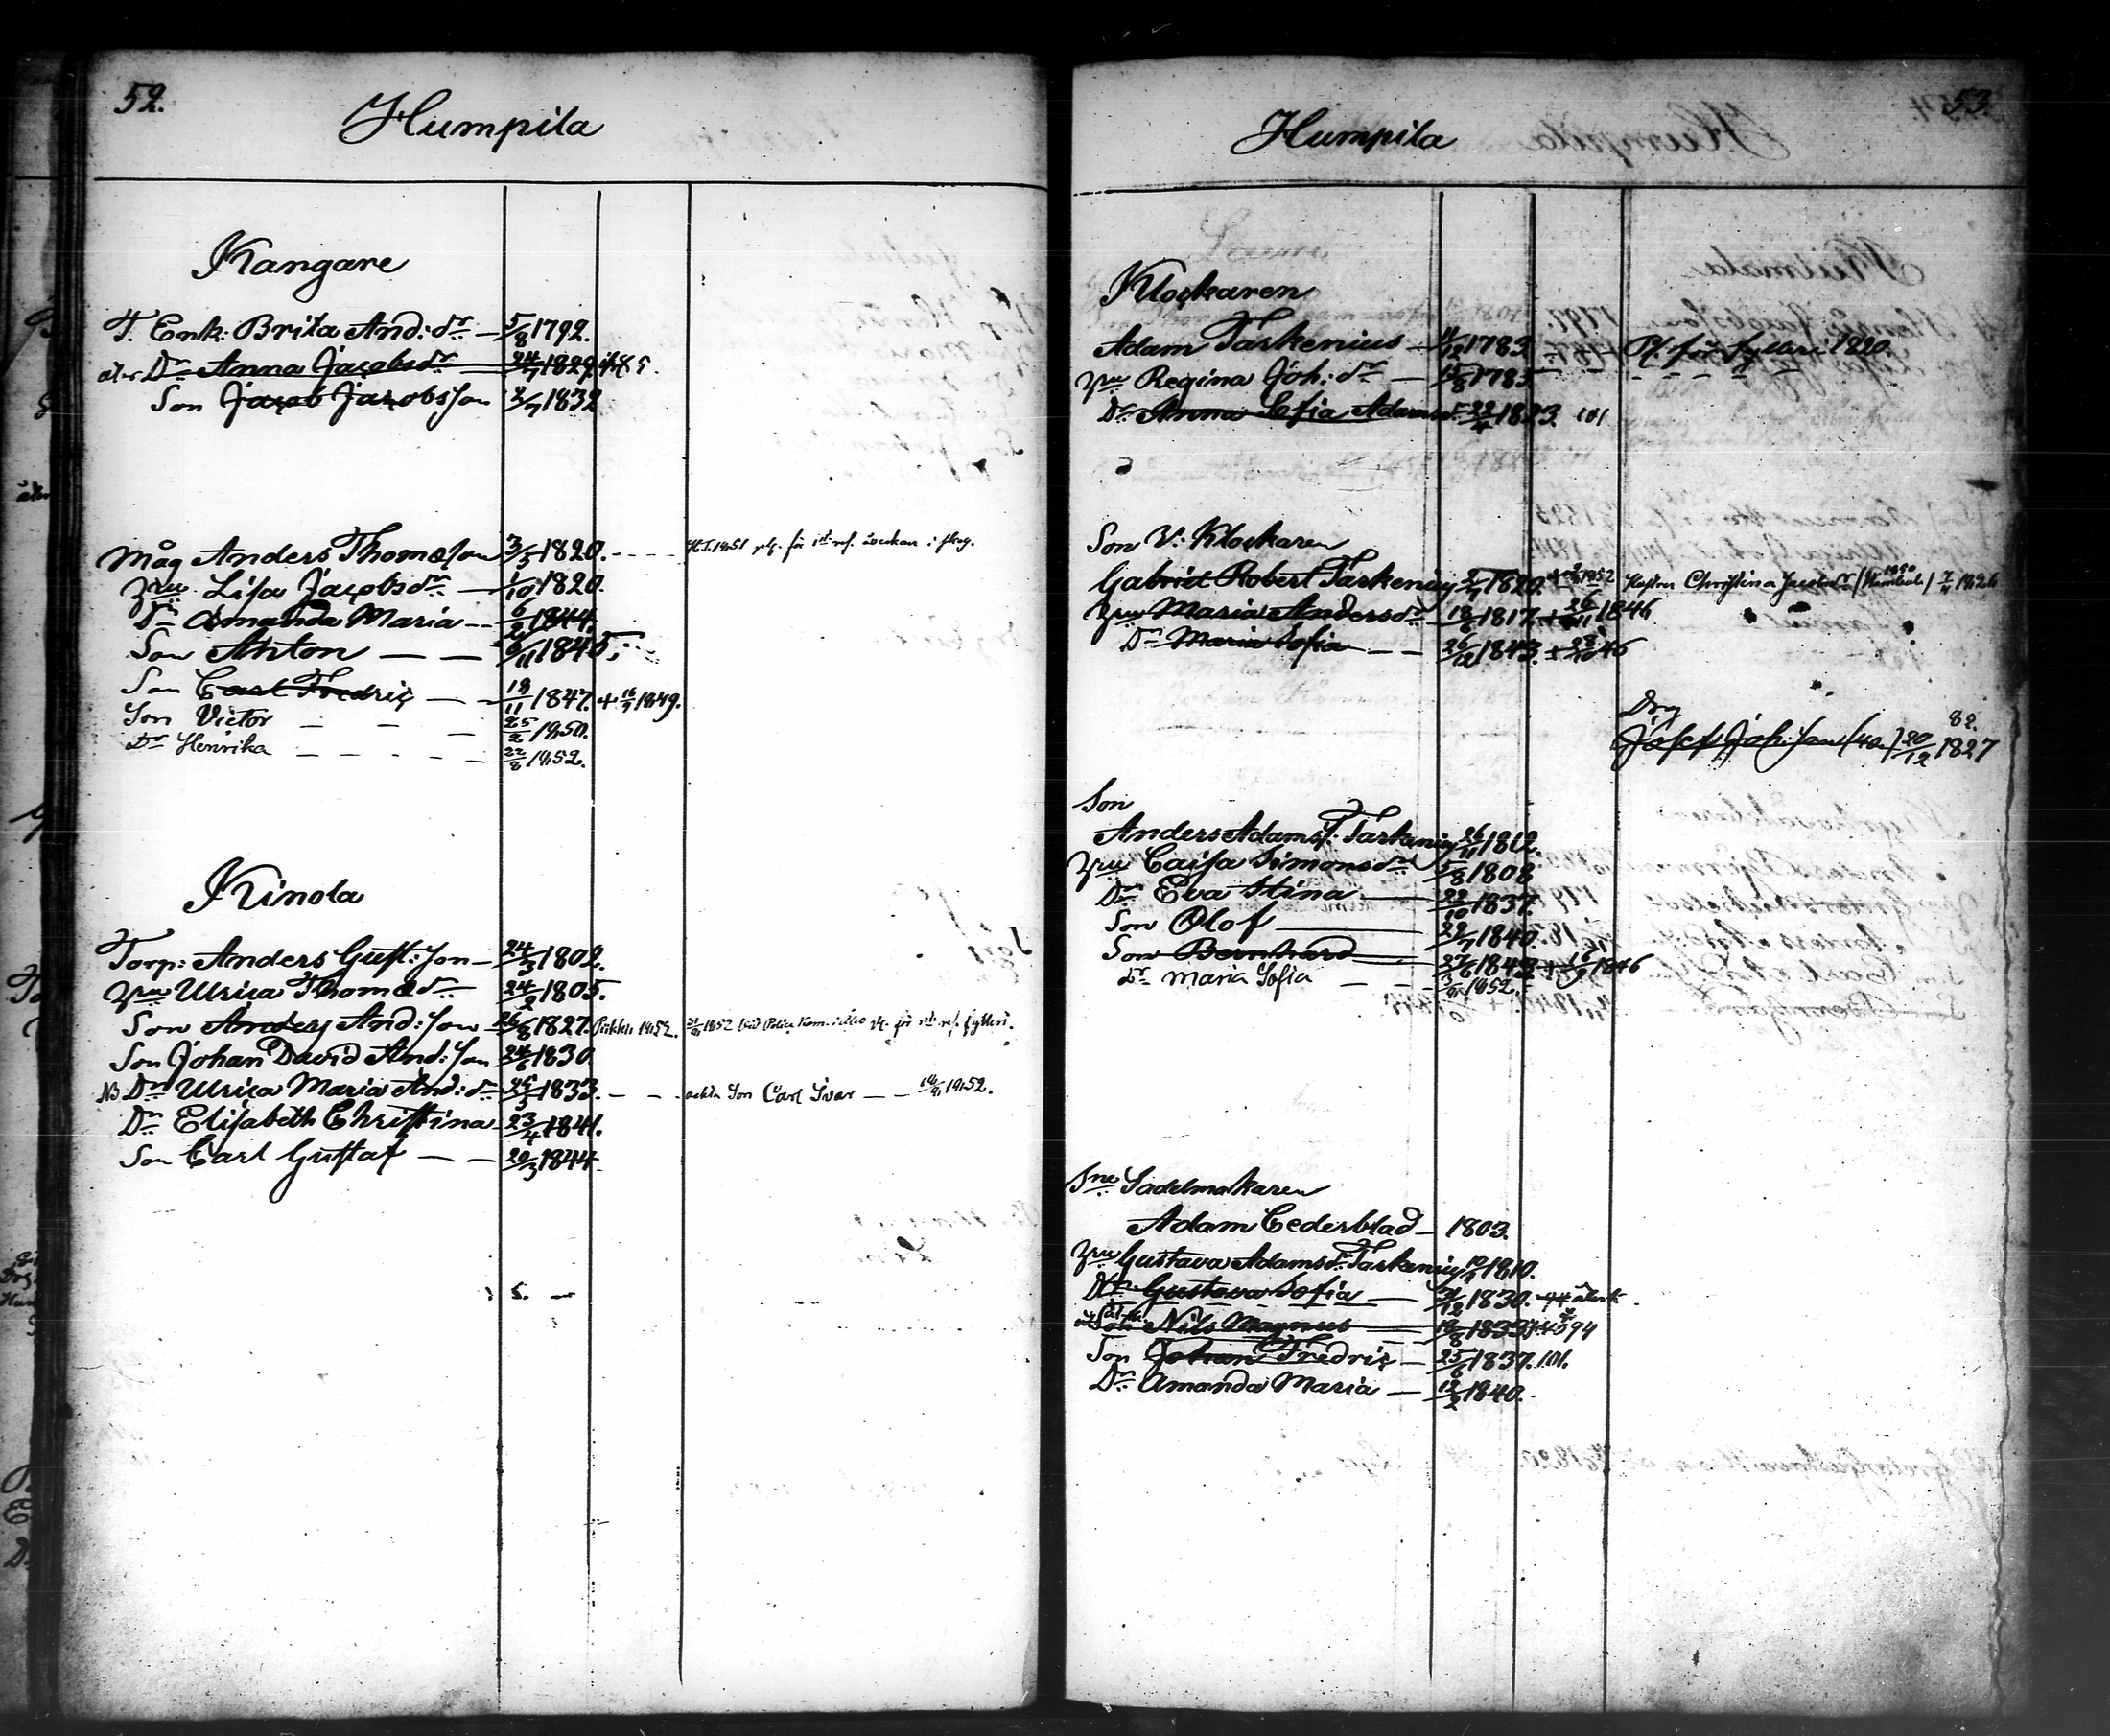 52.
Humpila
Kangare
T. Enk: Brita And: dr — 5/8 1792.
åter Dr Anna Jacobsdr — 24/7 1829.
Son Jacob Jacobsson 2/7 1832
Måg Anders Thomasson 3/5 1820. - - - -
Hru Lisa Jacobsdr — 1/10 1820.
Dr Amanda Maria — 6/2 1844.
Son Anton — — 6/11 1845.
Son Carl Fredric — 18/11 1847. + 16/7 1849.
Son Victor — — — 25/2 1850.
Dr Henrika — — — 22/8 1852.
Kinola
Torp: Anders Gust: son — 24/3 1802.
Hru Ulrica Thomædr — 24/2 1805.
Son Anders And: son 26/8 1827. 1852.
Son Johan David And: son 24/6 1830.
NB Dr Ulrica Maria And: dr 25/5 1833. — — Son Carl Ivar — — 1852.
Dr Elisabeth Christina 23/4 1841.
Son Carl Gustaf — — 20/3 1844.
53.
Humpila
Klockaren
Adam Tarkenius — 11/12 1783. Pl. för fylleri 1820.
Hru Regina Joh: dr — 15/8 1785
Dr Anna Sofia Adamsdr 22/4 1823. 101
Son V: Klockaren
Gabriel Robert Tarkenius 2/7 1820. 1852 Hustru Christina Jacobsdr
Hru Maria Andersdr 18/6 1817. + 26/11 1846
Dr Maria Sofia — — 26/12 1843. + 28/10 46
Drg
82.
Josef Joh: son (40) 20/12 1827
Son
Anders Adamss: Tarkenius 26/11 1812.
Hru Caisa Simonsdr 5/8 1808
Dr Eva Stina — 22/10 1837.
Son Olof — 29/7 1840.
Son Bernhard — 27/6 1843 + 1846
Dr Maria Sofia — — 1852.
Sne Sadelmakaren
Adam Cederblad — 1803.
Hru Gustava Adamsdr Tarkenius 1810.
Dr Gustava Sofia — 31/12 1830.
Son Nils Magnus — 1833 94
Son Johan Fredric — 25/6 1837. 101.
Dr Amanda Maria — 12/2 1840.